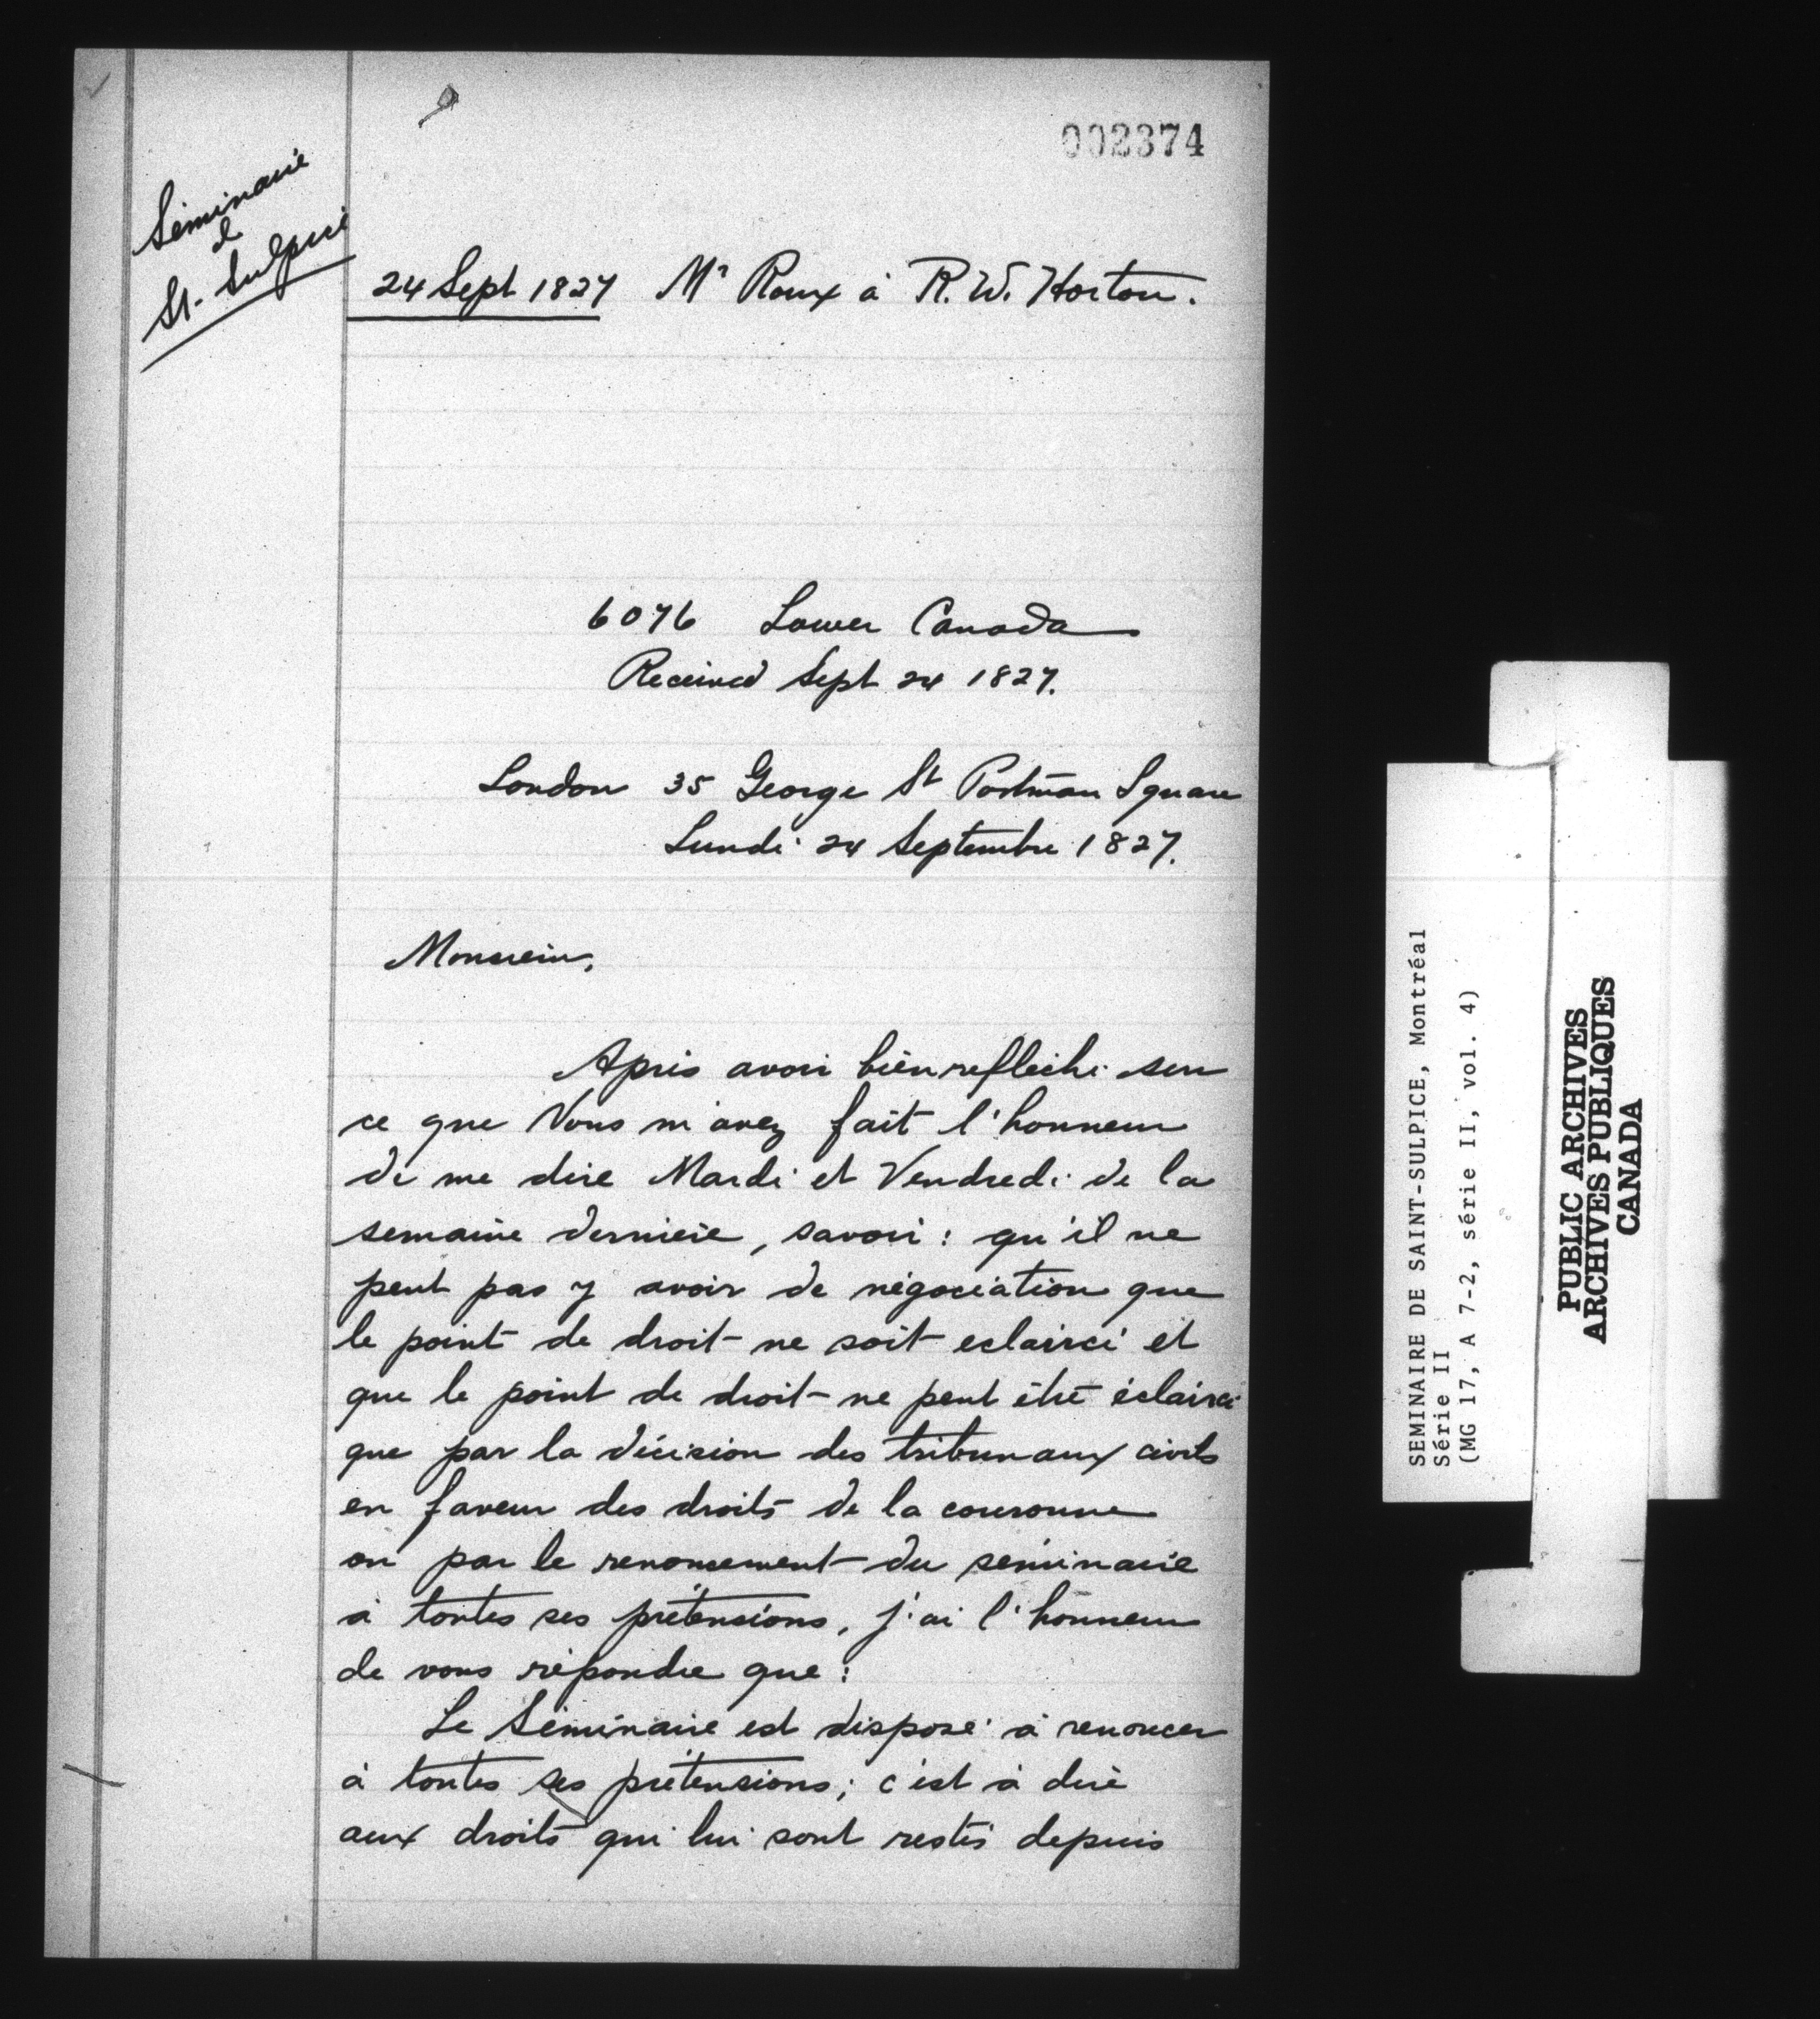 002374
Séminaire
de
St. Sulpice
24 Sept 1827 Mr Roux à R. W. Horton.
6076 Lower Canada
Received Sept 24 1827.
London 35 George St Portman Square
Lundi 24 Septembre 1827.
Monsieur,
Après avoir bien reflechi sur
ce que Vous m'avez fait l'honneur
de me dire Mardi et Vendredi de la
semaine dernière, savoir : qu'il ne
peut pas y avoir de négociation que
le point de droit ne soit eclairci et
que le point de droit ne peut être éclairci
que par la décision des tribunaux civils
en faveur des droits de la couronne
ou par le renoncement du séminaire
à toutes ses prétensions, j'ai l'honneur
de vous répondre que :
Le Séminaire est disposé à renoncer
à toutes ses prétensions ; c'est à dire
aux droits qui lui sont restés depuis
SEMINAIRE DE SAINT-SULPICE, Montréal
Série II
(MG 17, A 7-2, série II, vol. 4)
PUBLIC ARCHIVES
ARCHIVES PUBLIQUES
CANADA